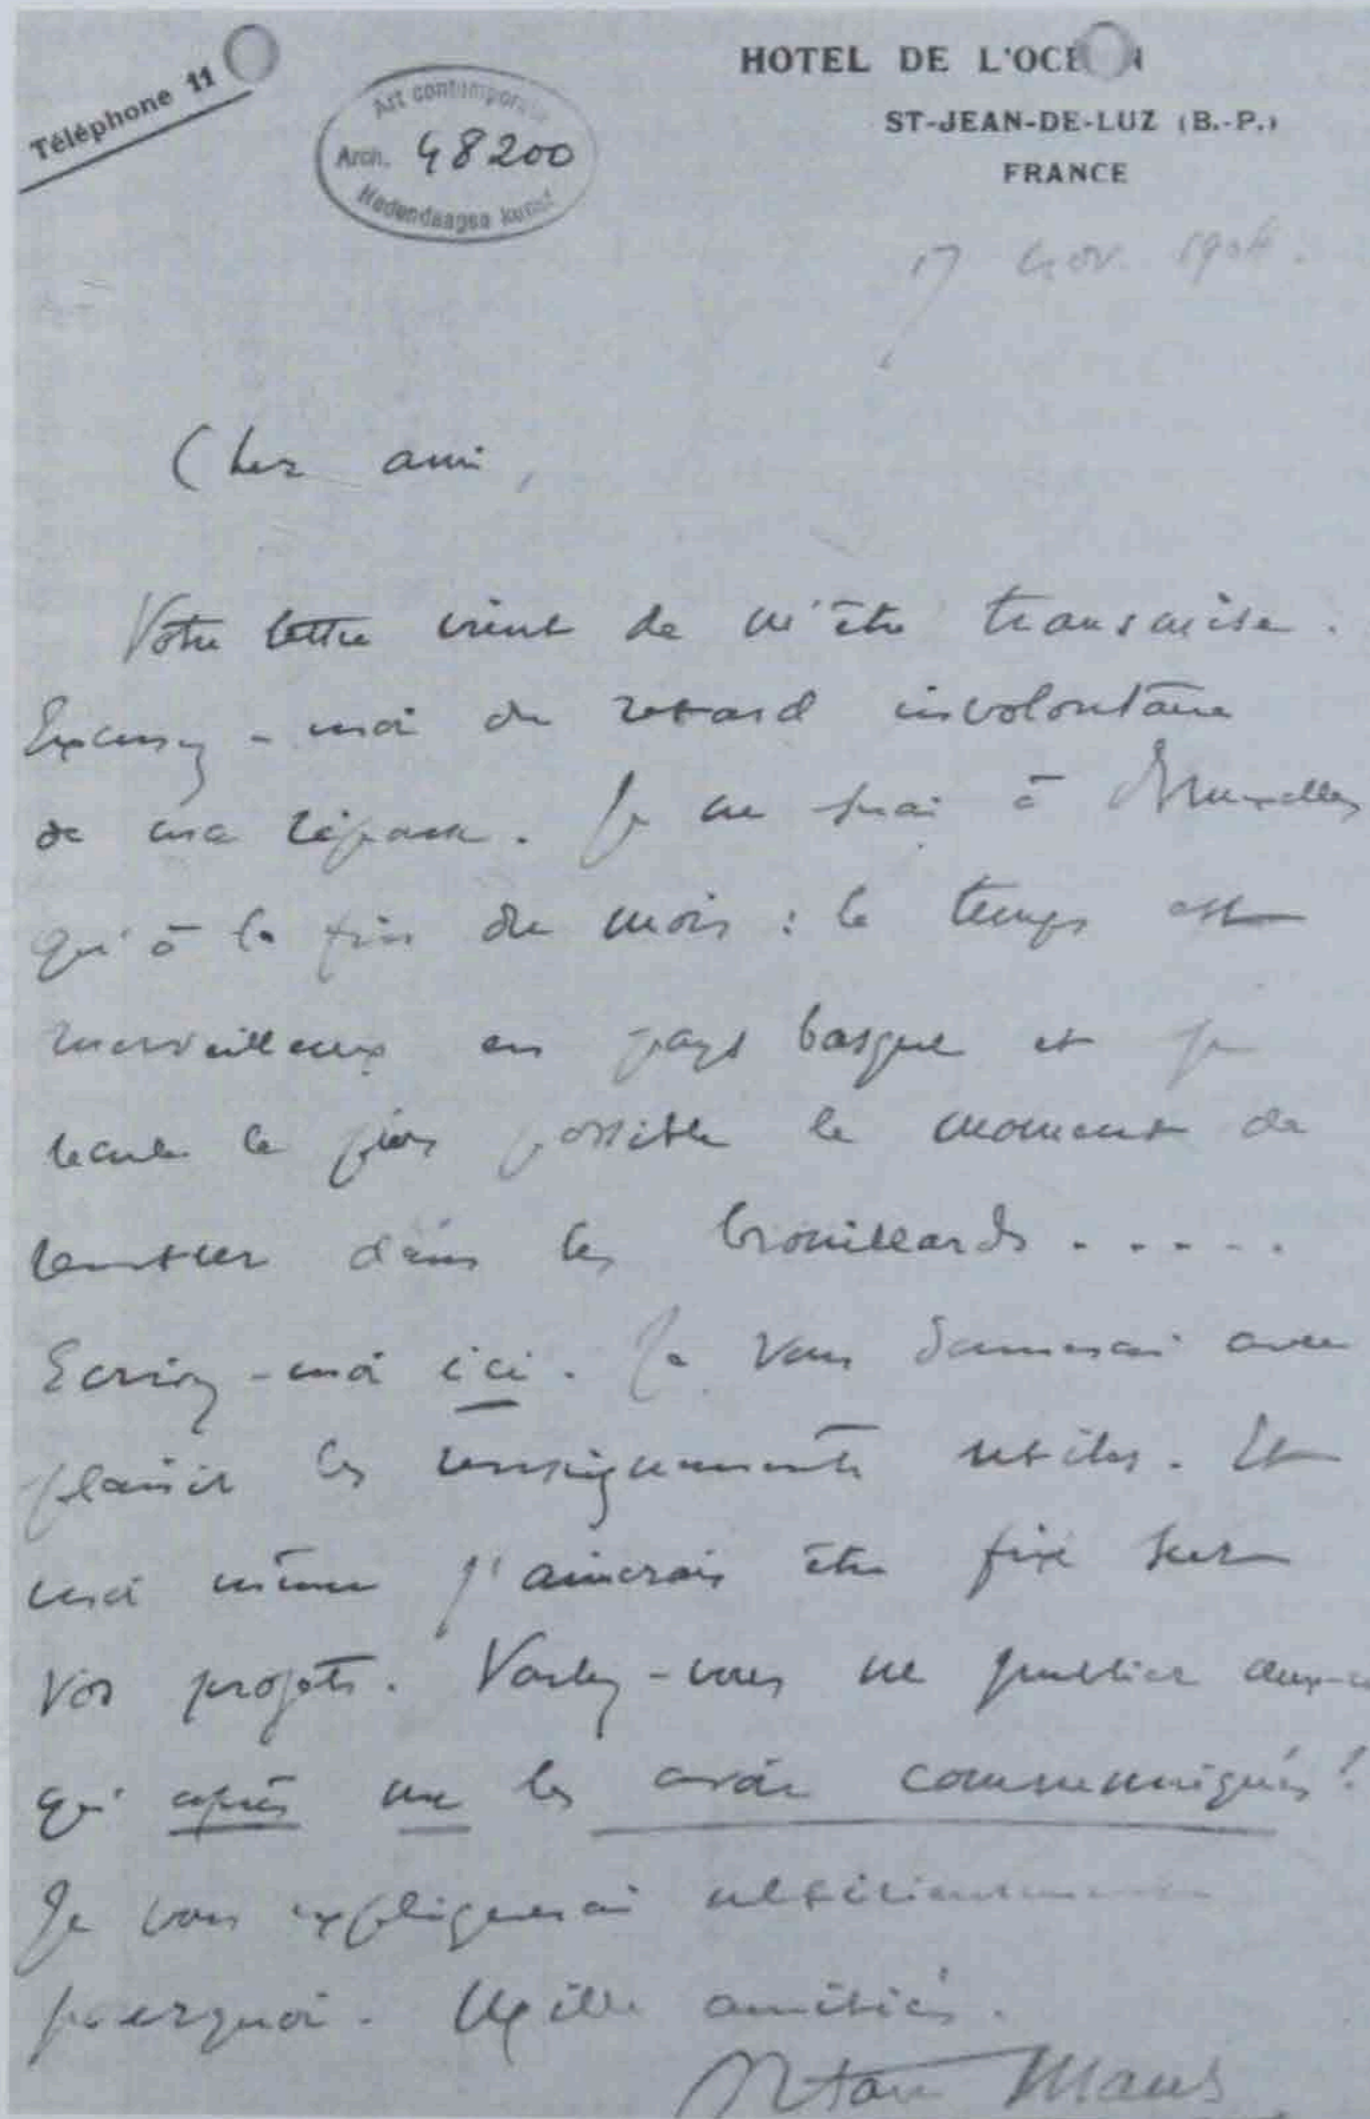 Téléphone 11
HOTEL DE L'OCEAN
ST-JEAN-DE-LUZ (B.-P.)
FRANCE
Art contemporain
Arch. 48200
Hedendaagse kunst
17 nov. 190
Cher ami,
Votre lettre vient de m'être transmise.
Excusez-moi du retard involontaire
de ma réponse. Je ne serai à Bruxelles
qu'à la fin du mois : le temps est
merveilleux en pays basque et je
recule le plus possible le moment de
rentrer dans les brouillards .....
Ecrivez-moi ici. Je vous donnerai avec
plaisir les renseignements utiles. Et
moi même j'aimerais être fixé sur
vos projets. Voulez-vous ne publier ceux-ci
qu'après me les avoir communiqués?
Je vous expliquerai ultérieurement
pourquoi. Mille amitiés.
Octave Maus